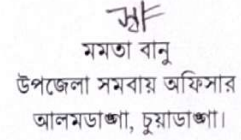 মমতা বানু
উপজেলা সমবায় অফিসার
আলমডাঙ্গা, চুয়াডাঙ্গা।